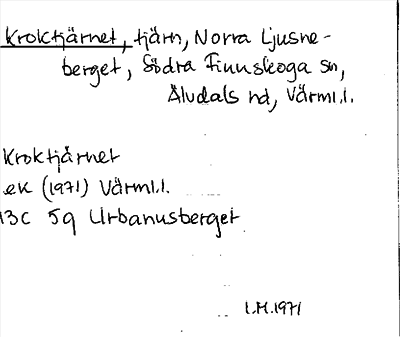 Kroktjärnet, tjärn, Norra Ljusne-
berget, Södra Finnskoga sn,
Älvdals hd, Värml.l.
Kroktjärnet
ek (1971) Värml.l.
13C 5g Urbanusberget
I.M.1971